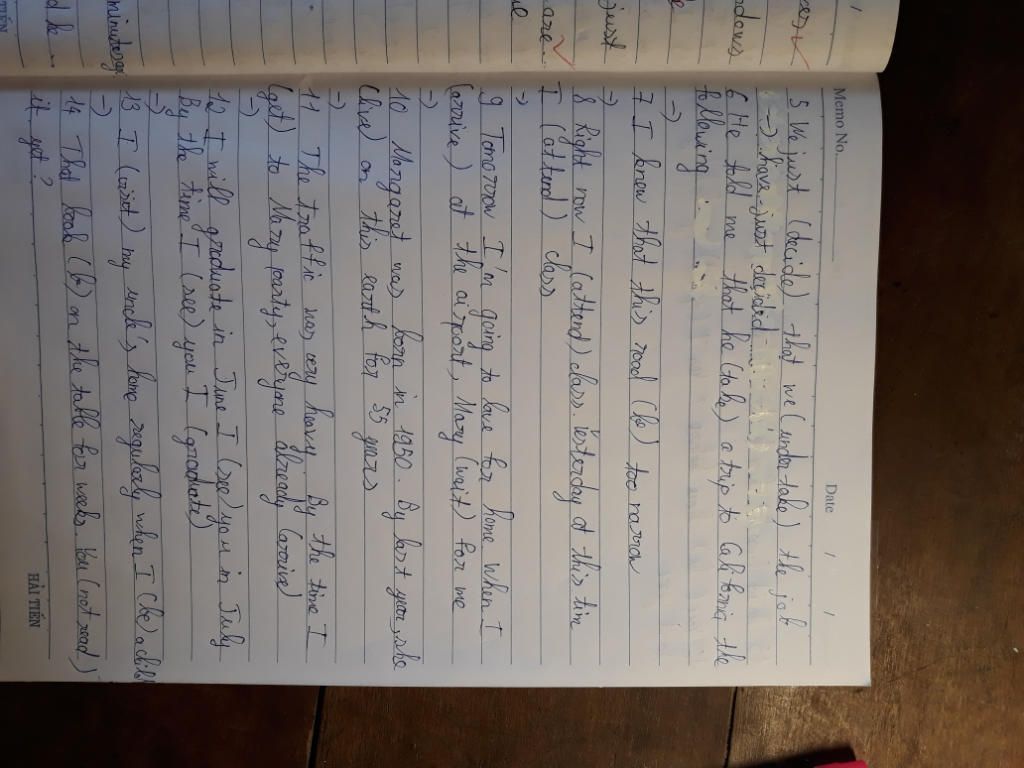 Memo No.
Date / /
5 We just (decide) that we (undertake) the job
-> have just decided
6 He told me that he (take) a trip to California the
following
->
7 I know that this road (be) too narrow
->
8 Right now I (attend) class. Yesterday at this tim
I (attend) class
->
9 Tomorrow I'm going to leave for home when I
(arrive) at the airport, Mary (wait) for me
->
10 Margaret was born in 1950. By last year, she
(live) on this earth for 55 years
->
11 The traffic was very heavy. By the time I
(get) to Mary party, everyone already (arrive)
->
12 I will graduate in June I (see) you in July
By the time I (see) you I (graduate)
->
13 I (visit) my uncle's home regularly when I (be) a child
->
14 That book (be) on the table for weeks. You (not read)
it yet?
HẢI TIẾN
just
are